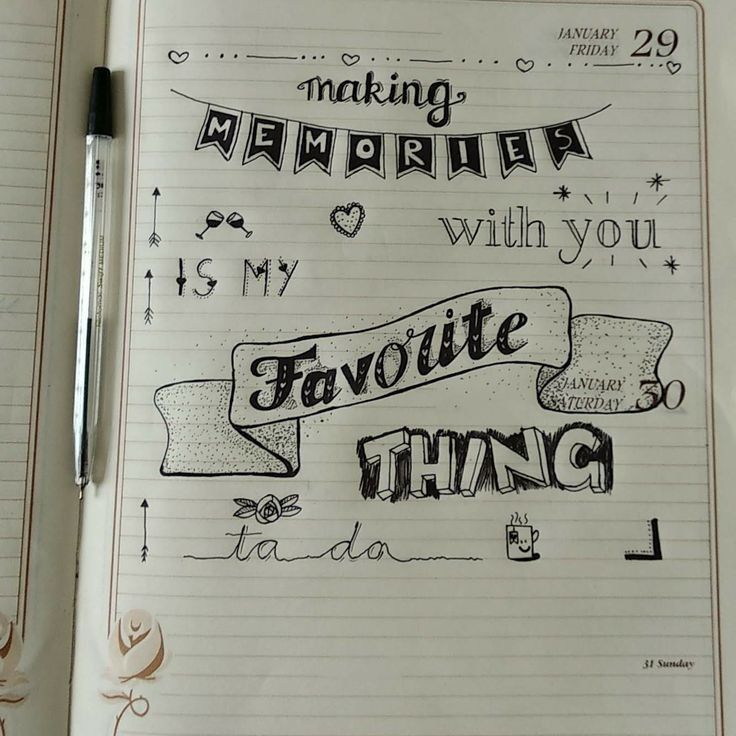 JANUARY 29
FRIDAY
making
MEMORIES
with you
IS MY
Favorite
JANUARY 30
SATURDAY
THING
ta da
31 Sunday